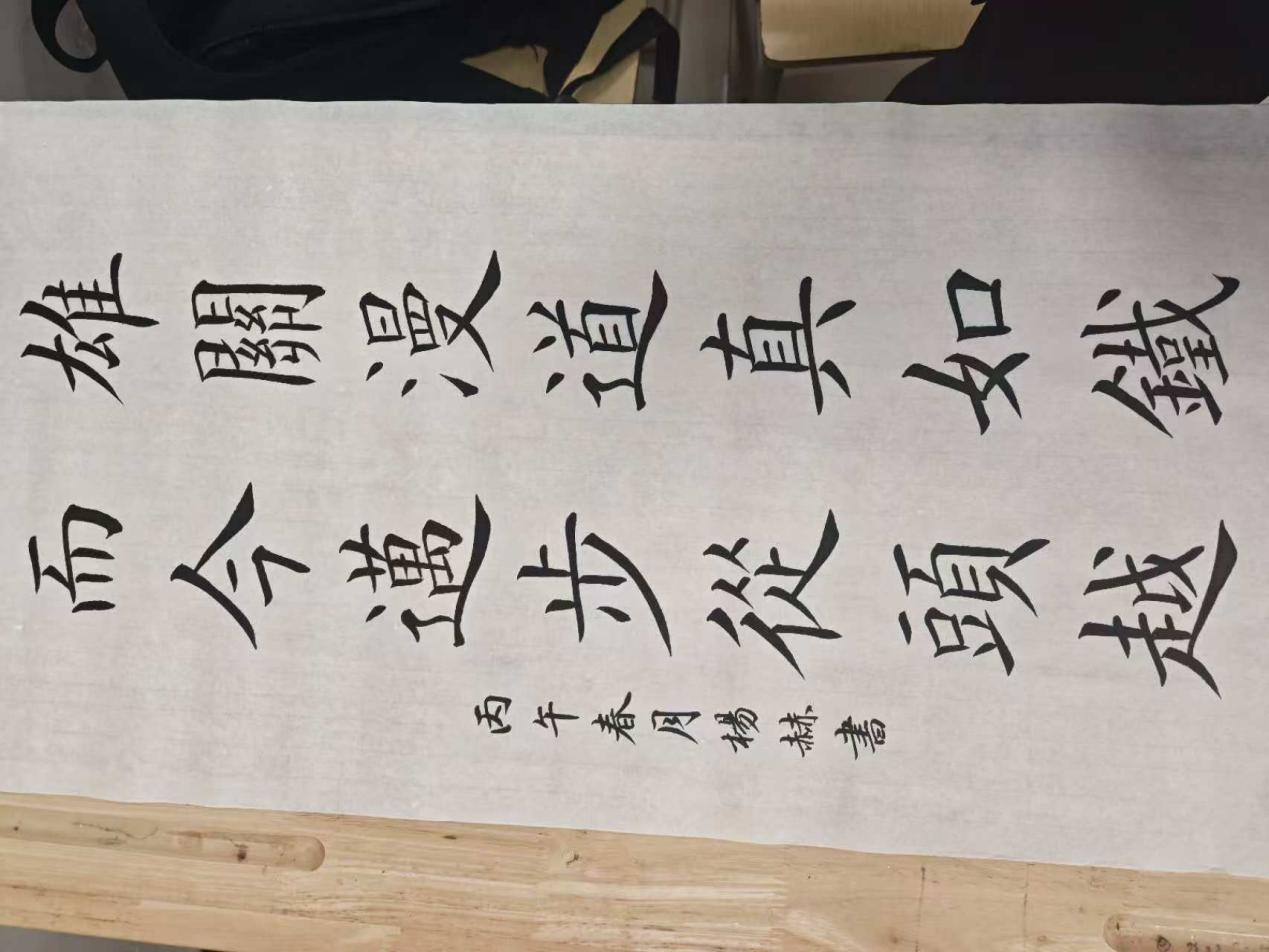 雄關漫道真如鐵
而今邁步從頭越
丙午春月楊赫書